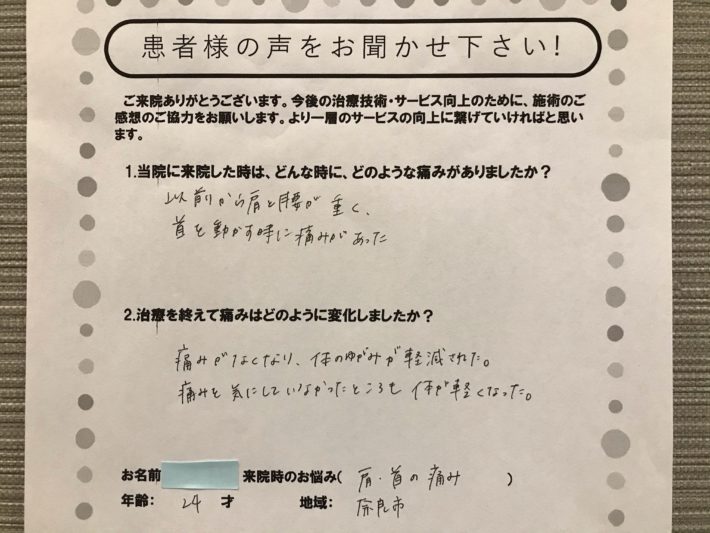 患者様の声をお聞かせ下さい!
ご来院ありがとうございます。今後の治療技術・サービス向上のために、施術のご
感想のご協力をお願いします。より一層のサービスの向上に繋げていければと思い
ます。
1.当院に来院した時は、どんな時に、どのような痛みがありましたか?
以前から肩と腰が重く、
首を動かす時に痛みがあった
2.治療を終えて痛みはどのように変化しましたか?
痛みがなくなり、体のゆがみが軽減された。
痛みを気にしていなかったところも体が軽くなった。
お名前 来院時のお悩み( 肩・首の痛み )
年齢: 24 才 地域: 奈良市